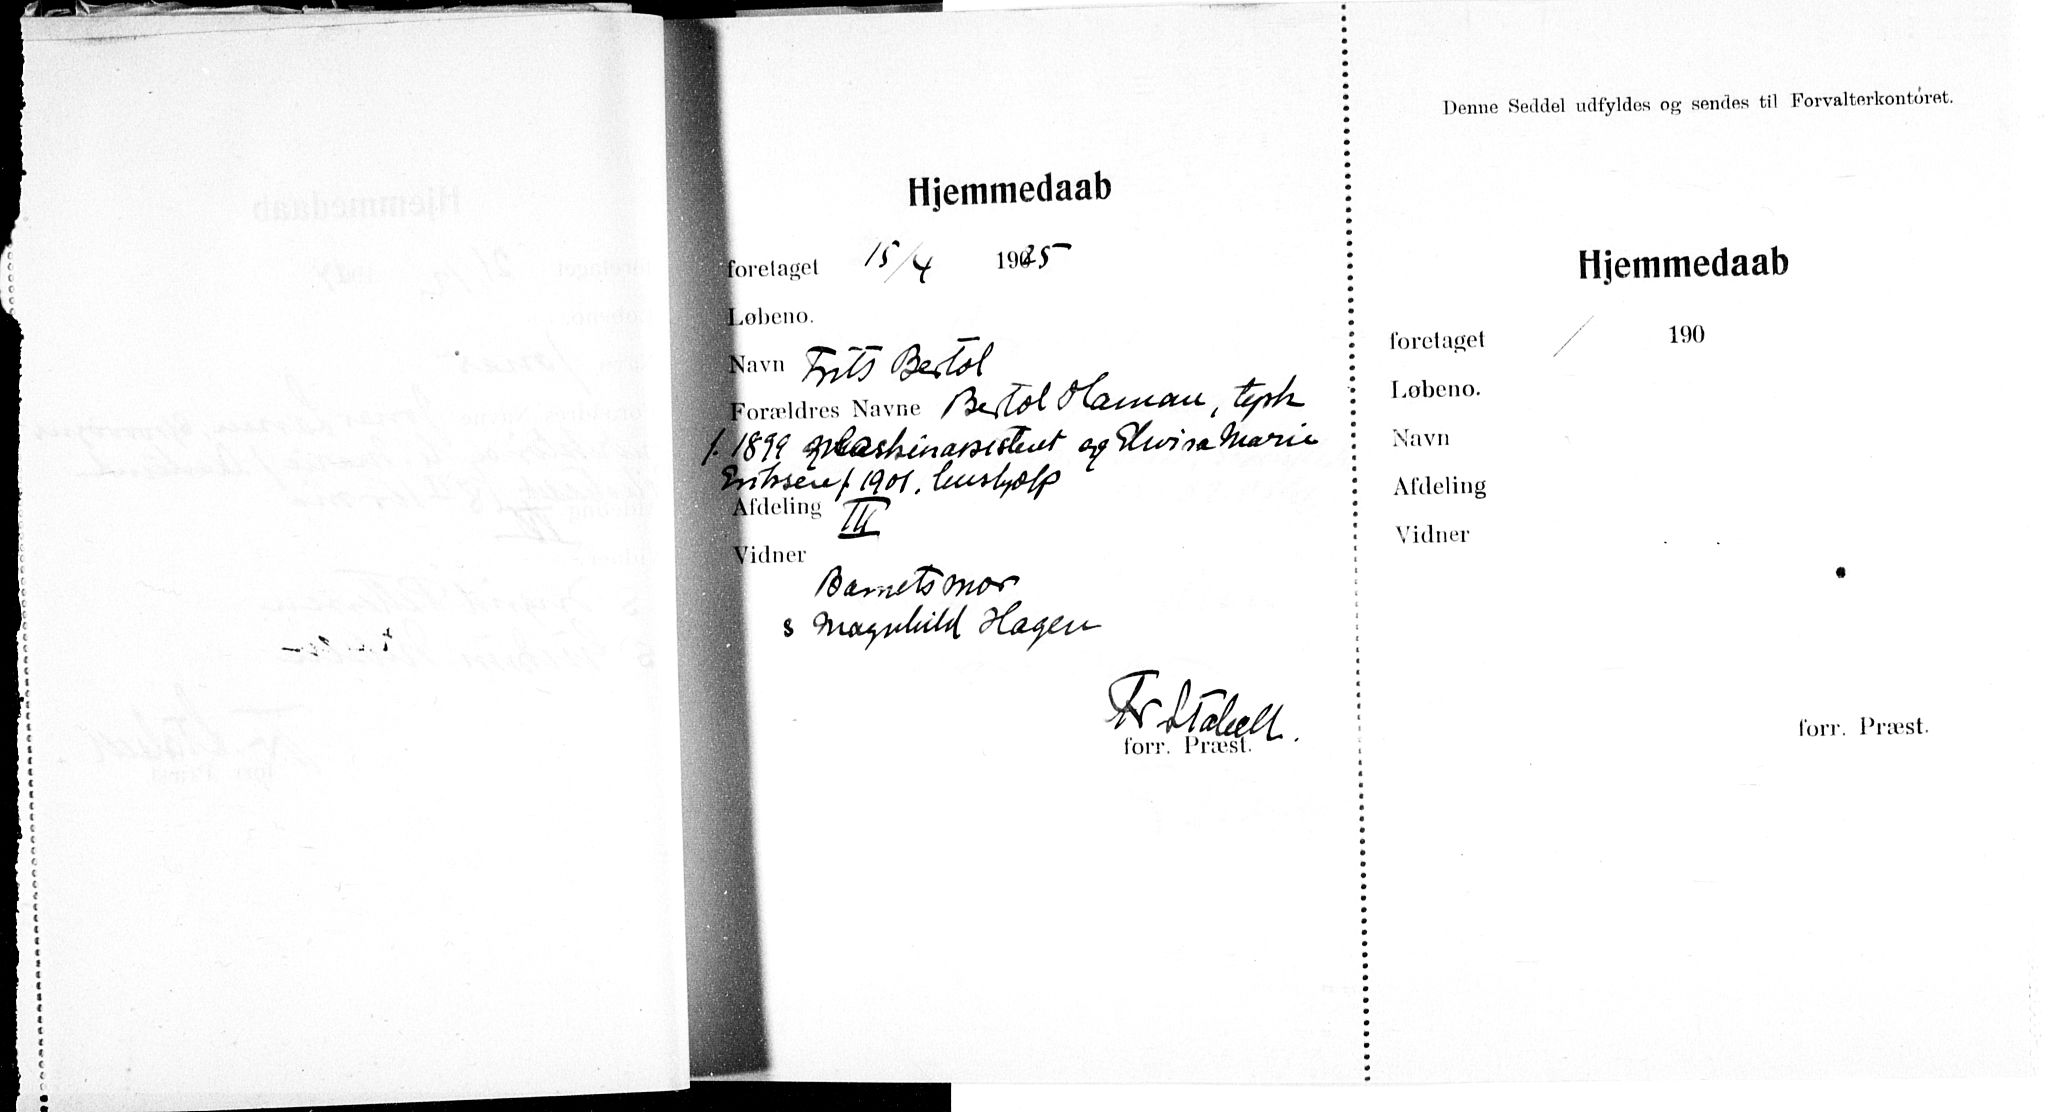 Hjemmedaab
foretaget 15/4 1925
Løbeno.
Navn Frits Bertol
Forældres Navne Bertol Haman, tysk
f. 1899 maskinassistent og Elvira Marie
Eriksen f. 1901. hushjælp
Afdeling III
Vidner
Barnets mor
s Magnhild Hagen
Fr Stabell.
forr. Præst.
Denne Seddel udfyldes og sendes til Forvalterkontoret.
Hjemmedaab
foretaget / 190
Løbeno.
Navn
Afdeling
Vidner
forr. Præst.